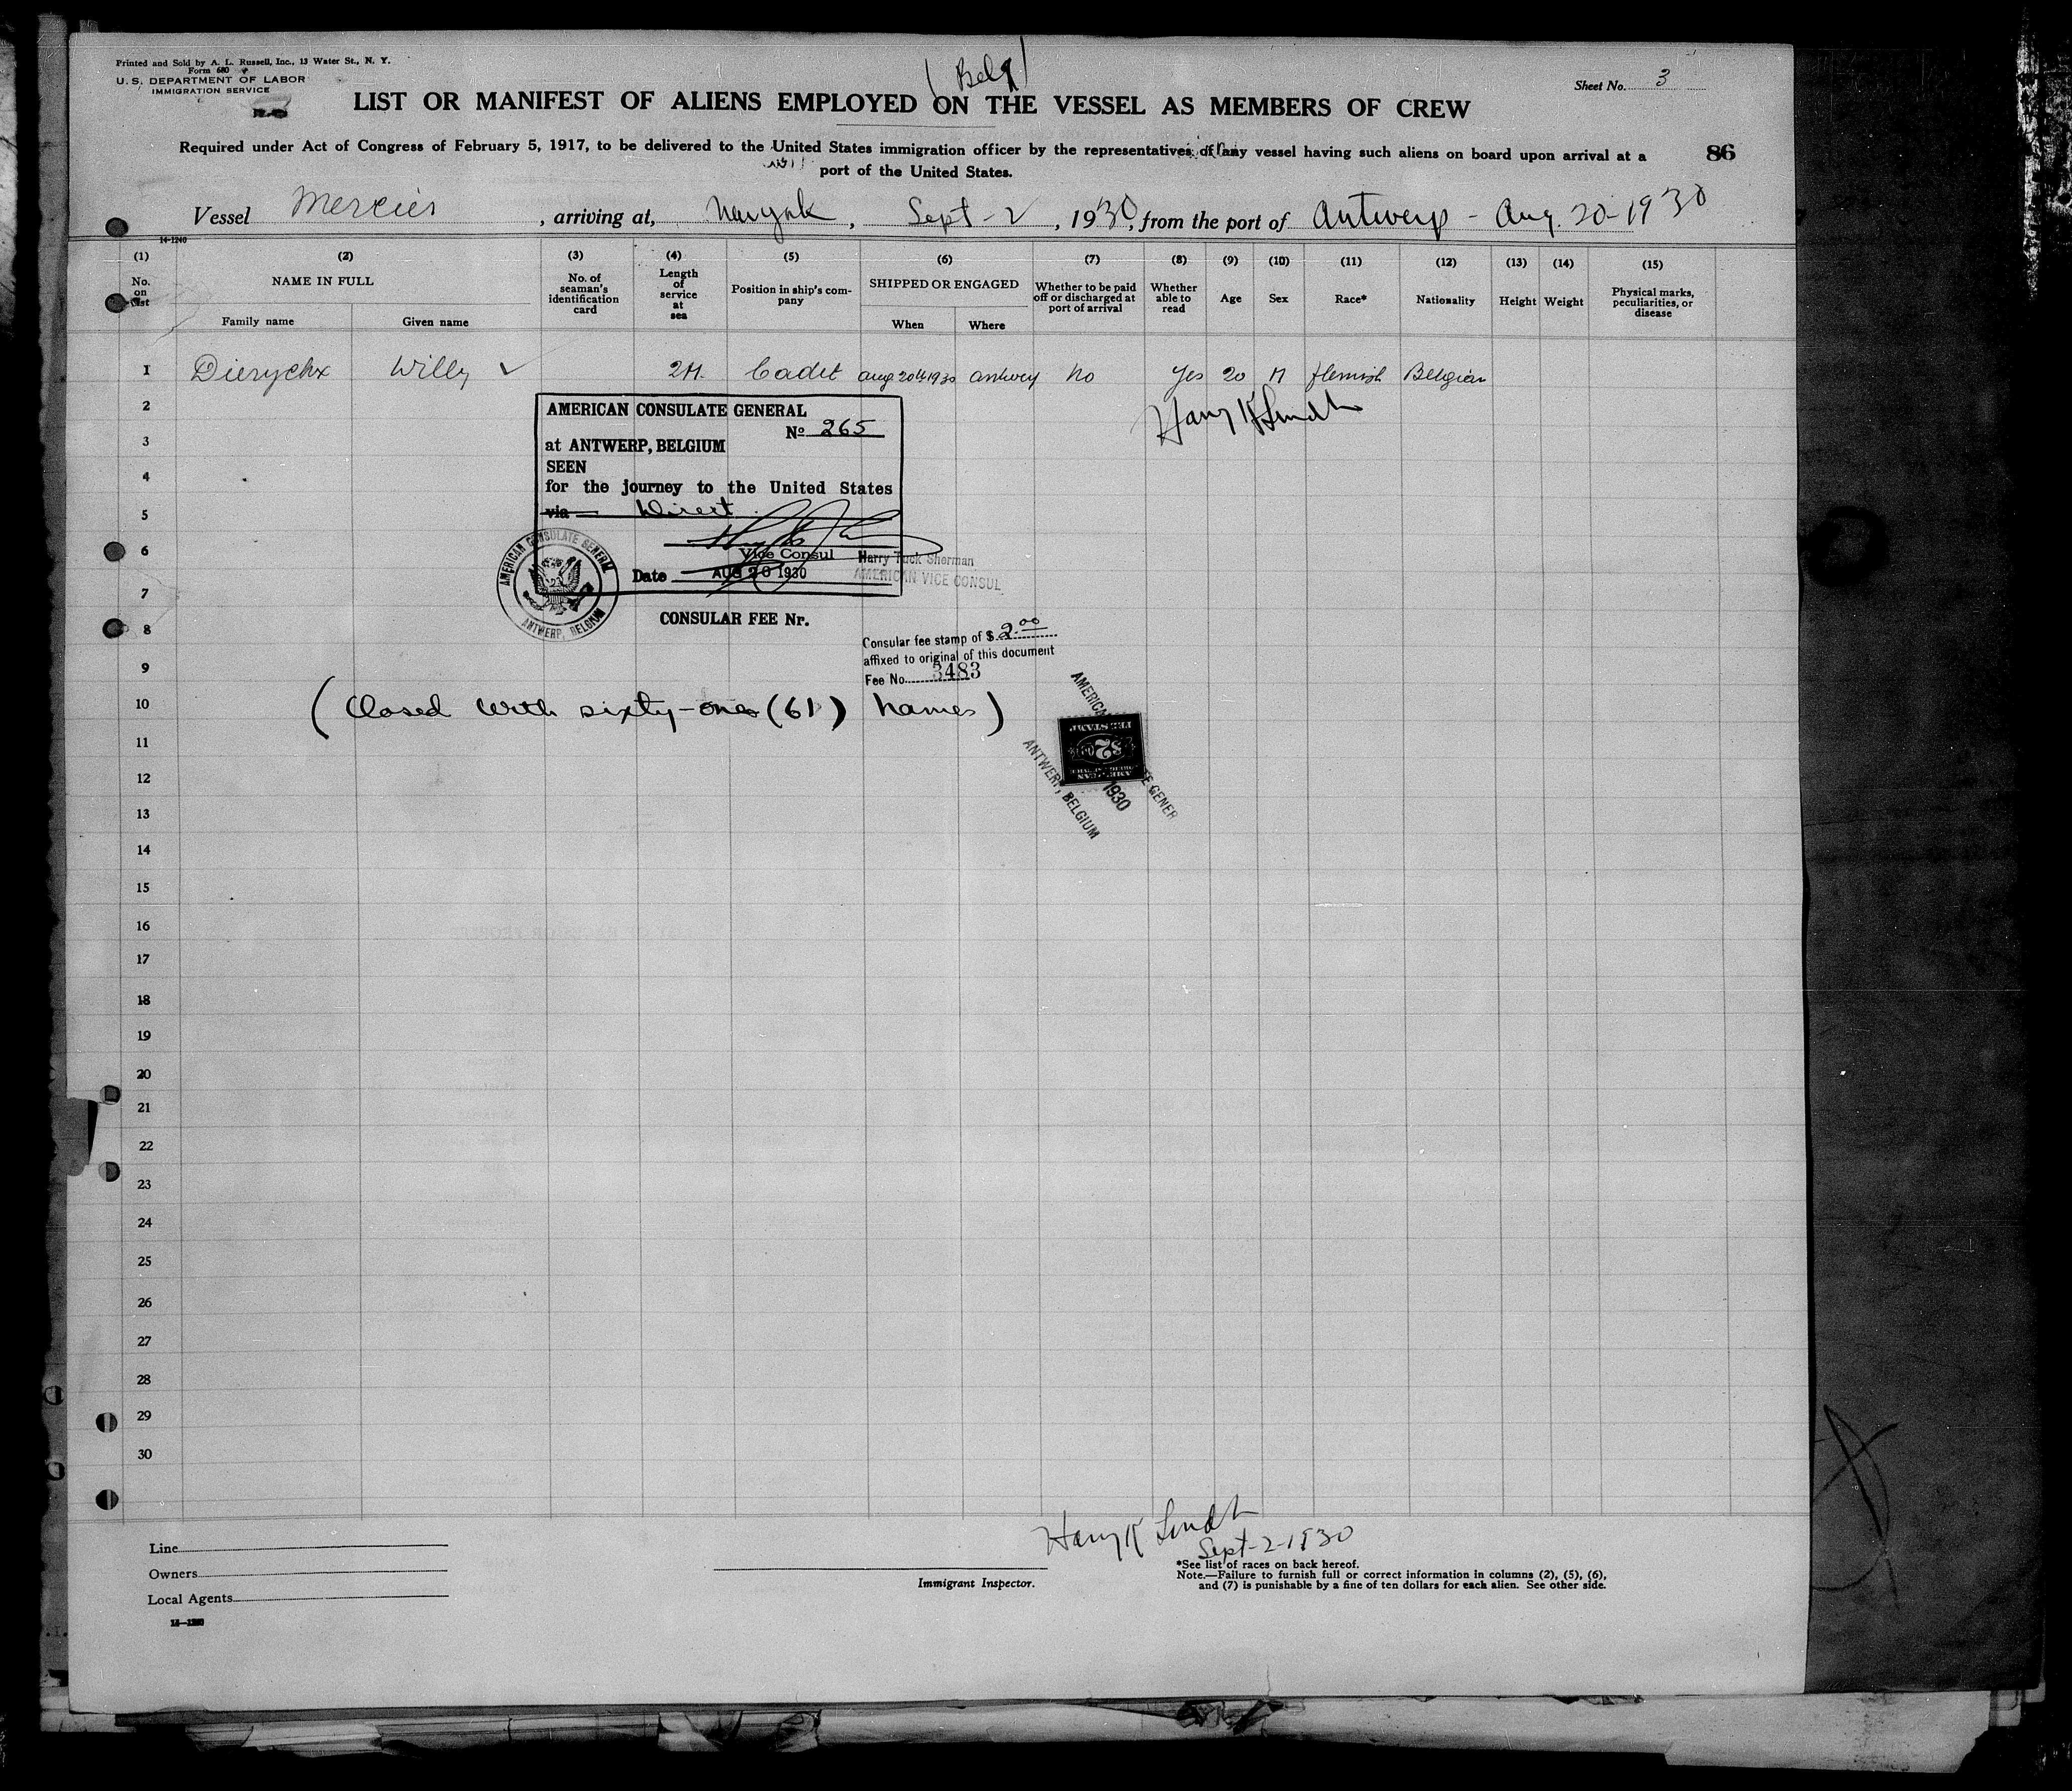 Printed and Sold by A. L. Russell, Inc., 13 Water St., N. Y.
Form 680
U. S. DEPARTMENT OF LABOR
IMMIGRATION SERVICE
(Belg)
Sheet No. 3
LIST OR MANIFEST OF ALIENS EMPLOYED ON THE VESSEL AS MEMBERS OF CREW
Required under Act of Congress of February 5, 1917, to be delivered to the United States immigration officer by the representatives of any vessel having such aliens on board upon arrival at a
port of the United States.
86
Vessel Mercier, arriving at, New York, Sept-2, 1930, from the port of Antwerp - Aug. 20-1930
14-1240
(1) (2) (3) (4) (5) (6) (7) (8) (9) (10) (11) (12) (13) (14) (15)
No. on List
NAME IN FULL
Family name
Given name
No. of seaman's identification card
Length of service at sea
Position in ship's company
SHIPPED OR ENGAGED
When
Where
Whether to be paid off or discharged at port of arrival
Whether able to read
Age
Sex
Race*
Nationality
Height
Weight
Physical marks, peculiarities, or disease
1 Dierychx Willy ✓ 2M. Cadet Aug 20th 1930 Antwerp No Yes 20 M flemish Belgian
2
3
4
5
6
7
8
9
10
11
12
13
14
15
16
17
18
19
20
21
22
23
24
25
26
27
28
29
30
AMERICAN CONSULATE GENERAL
No 265
at ANTWERP, BELGIUM
SEEN
for the journey to the United States
via Direct
Vice Consul
Harry Tuck Sherman
AMERICAN VICE CONSUL
Date AUG 20 1930
AMERICAN CONSULATE GENERAL
ANTWERP, BELGIUM
CONSULAR FEE Nr.
Consular fee stamp of $ 2.00
affixed to original of this document
Fee No. 3483
(Closed with sixty-one (61) names)
AMERICAN
ANTWERP, BELGIUM
1930
TE GENER
$2
Sept-2-1930
Line
Owners
Local Agents
Immigrant Inspector.
*See list of races on back hereof.
Note.—Failure to furnish full or correct information in columns (2), (5), (6),
and (7) is punishable by a fine of ten dollars for each alien. See other side.
14—1240